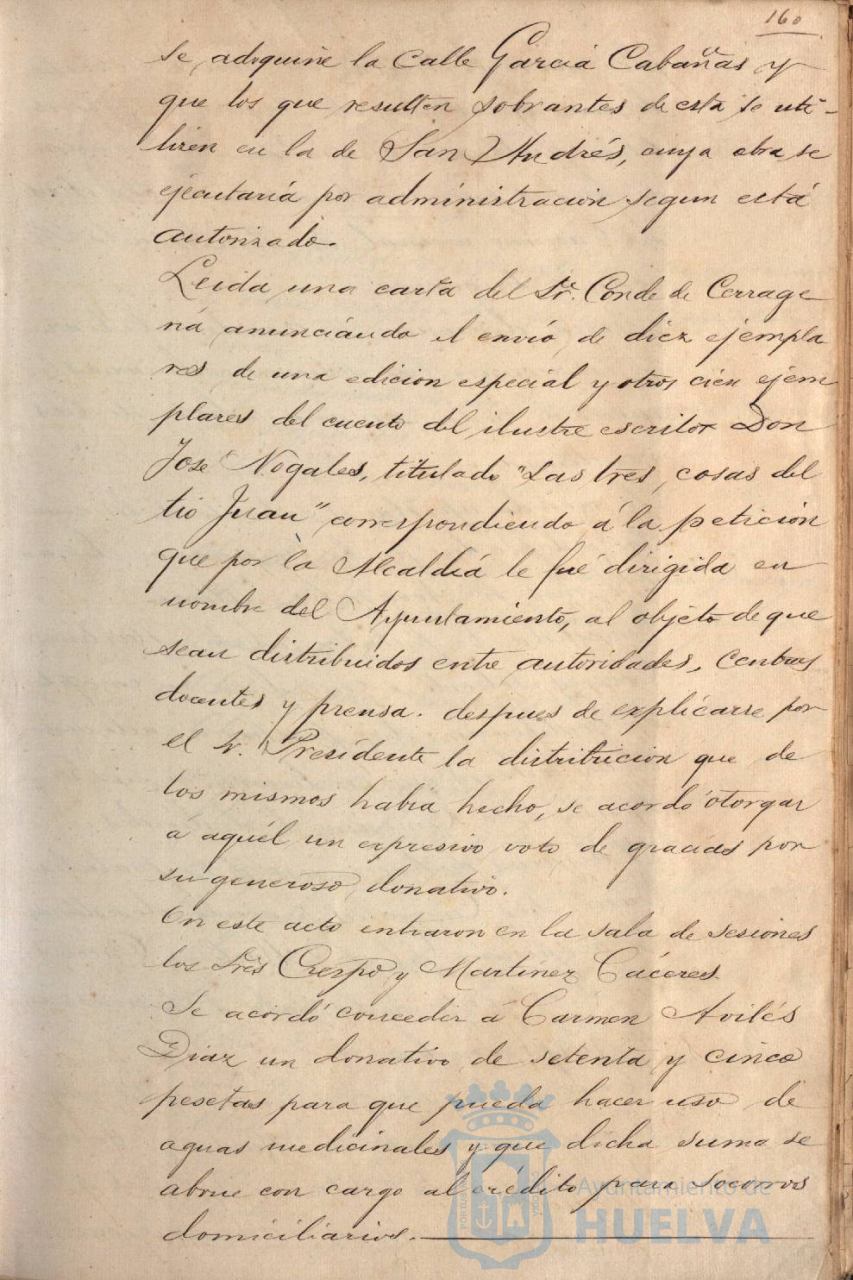 160
se adoquine la calle Garcia Cabañas y
que los que resulten sobrantes de esta se uti-
licen en la de San Andrés, cuya obra se
ejecutaria por administracion segun está
autorizado.
Leida una carta del Sr. Conde de Cerrage
ria anunciando el envio de diez ejempla
res de una edicion especial y otros cien ejem
plares del cuento del ilustre escritor Don
José Nogales, titulado "Las tres cosas del
tio Juan", correspondiendo á la peticion
que por la Alcaldia le fué dirigida en
nombre del Ayuntamiento, al objeto de que
sean distribuidos entre autoridades, centros
docentes y prensa. despues de explicarse por
el Sr. Presidente la distribucion que de
los mismos habia hecho, se acordó otorgar
á aquél un expresivo voto de gracias por
su generoso donativo.
En este acto entraron en la sala de sesiones
los Sres Crespo y Martinez Cáceres.
Se acordó conceder á Carmen Avilés
Diaz un donativo de setenta y cinco
pesetas para que pueda hacer uso de
aguas medicinales y que dicha suma se
abone con cargo al crédito para socorros
domiciliarios.
Ayuntamiento de
HUELVA